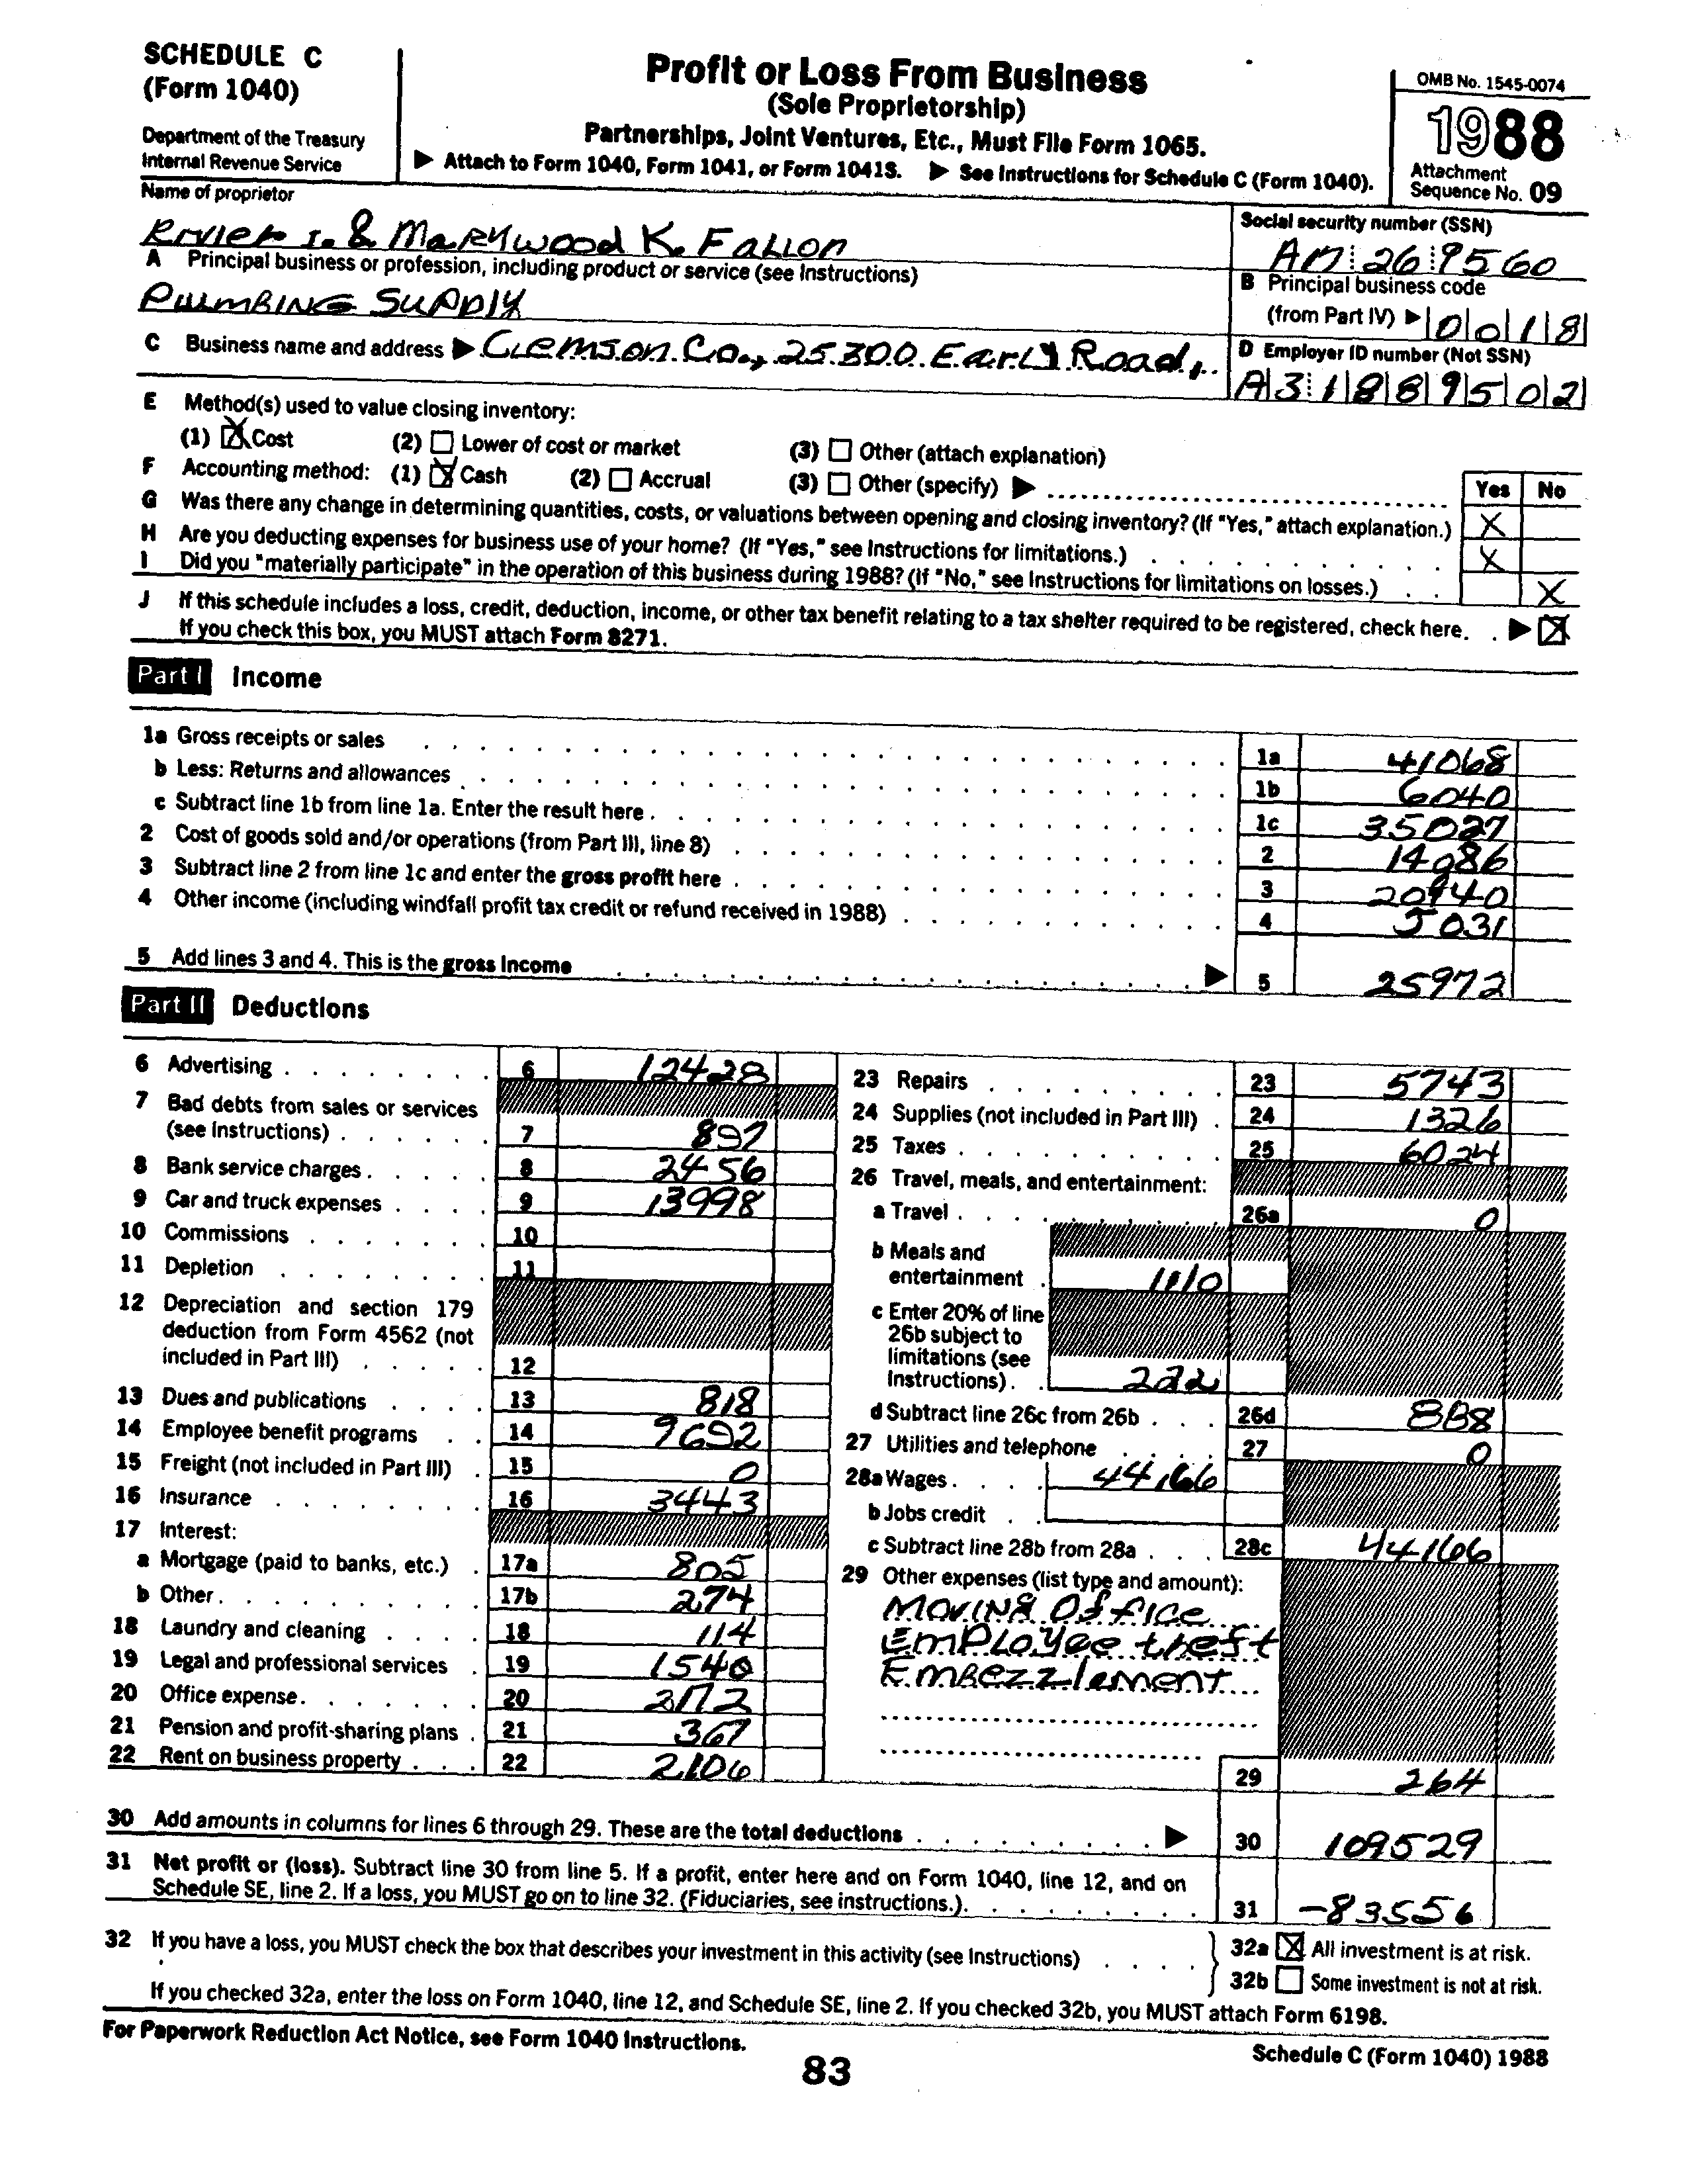 SCHEDULE C
(Form 1040)
Department of the Treasury
Internal Revenue Service
Profit or Loss From Business
(Sole Proprietorship)
Partnerships, Joint Ventures, Etc., Must File Form 1065.
▶ Attach to Form 1040, Form 1041, or Form 1041S. ▶ See Instructions for Schedule C (Form 1040).
OMB No. 1545-0074
1988
Attachment
Sequence No. 09
Name of proprietor
I. & Marywood K. Fallon
Social security number (SSN)
26 9560
A Principal business or profession, including product or service (see Instructions)
Plumbing Supply
B Principal business code
(from Part IV) ▶ 0018
C Business name and address ▶ Clemson Co., 25300 Early Road,
D Employer ID number (Not SSN)
A31889502
E Method(s) used to value closing inventory:
(1) ☒ Cost (2) ☐ Lower of cost or market (3) ☐ Other (attach explanation)
F Accounting method: (1) ☒ Cash (2) ☐ Accrual (3) ☐ Other (specify) ▶
Yes No
G Was there any change in determining quantities, costs, or valuations between opening and closing inventory? (If "Yes," attach explanation.) X
H Are you deducting expenses for business use of your home? (If "Yes," see Instructions for limitations.) X
I Did you "materially participate" in the operation of this business during 1988? (If "No," see Instructions for limitations on losses.) X
J If this schedule includes a loss, credit, deduction, income, or other tax benefit relating to a tax shelter required to be registered, check here. ▶ ☒
If you check this box, you MUST attach Form 8271.
Part I Income
1a Gross receipts or sales 1a 41068
b Less: Returns and allowances 1b 6040
c Subtract line 1b from line 1a. Enter the result here 1c 35027
2 Cost of goods sold and/or operations (from Part III, line 8) 2 14086
3 Subtract line 2 from line 1c and enter the gross profit here 3 20940
4 Other income (including windfall profit tax credit or refund received in 1988) 4 5031
5 Add lines 3 and 4. This is the gross income ▶ 5 25972
Part II Deductions
6 Advertising 6 12428
7 Bad debts from sales or services
(see Instructions) 7 897
8 Bank service charges 8 2456
9 Car and truck expenses 9 13998
10 Commissions 10
11 Depletion 11
12 Depreciation and section 179
deduction from Form 4562 (not
included in Part III) 12
13 Dues and publications 13 818
14 Employee benefit programs 14 9692
15 Freight (not included in Part III) 15 0
16 Insurance 16 3443
17 Interest:
a Mortgage (paid to banks, etc.) 17a 805
b Other 17b 274
18 Laundry and cleaning 18 114
19 Legal and professional services 19 1540
20 Office expense 20 2172
21 Pension and profit-sharing plans 21 367
22 Rent on business property 22 2106
23 Repairs 23 5743
24 Supplies (not included in Part III) 24 1326
25 Taxes 25 6024
26 Travel, meals, and entertainment:
a Travel 26a 0
b Meals and
entertainment 1110
c Enter 20% of line
26b subject to
limitations (see
Instructions) 222
d Subtract line 26c from 26b 26d 888
27 Utilities and telephone 27 0
28a Wages 44166
b Jobs credit
c Subtract line 28b from 28a 28c 44166
29 Other expenses (list type and amount):
Moving Office
Employee theft
Embezzlement
29 264
30 Add amounts in columns for lines 6 through 29. These are the total deductions ▶ 30 109529
31 Net profit or (loss). Subtract line 30 from line 5. If a profit, enter here and on Form 1040, line 12, and on
Schedule SE, line 2. If a loss, you MUST go on to line 32. (Fiduciaries, see instructions.) 31 -83556
32 If you have a loss, you MUST check the box that describes your investment in this activity (see Instructions)
32a ☒ All investment is at risk.
32b ☐ Some investment is not at risk.
If you checked 32a, enter the loss on Form 1040, line 12, and Schedule SE, line 2. If you checked 32b, you MUST attach Form 6198.
For Paperwork Reduction Act Notice, see Form 1040 Instructions.
Schedule C (Form 1040) 1988
83